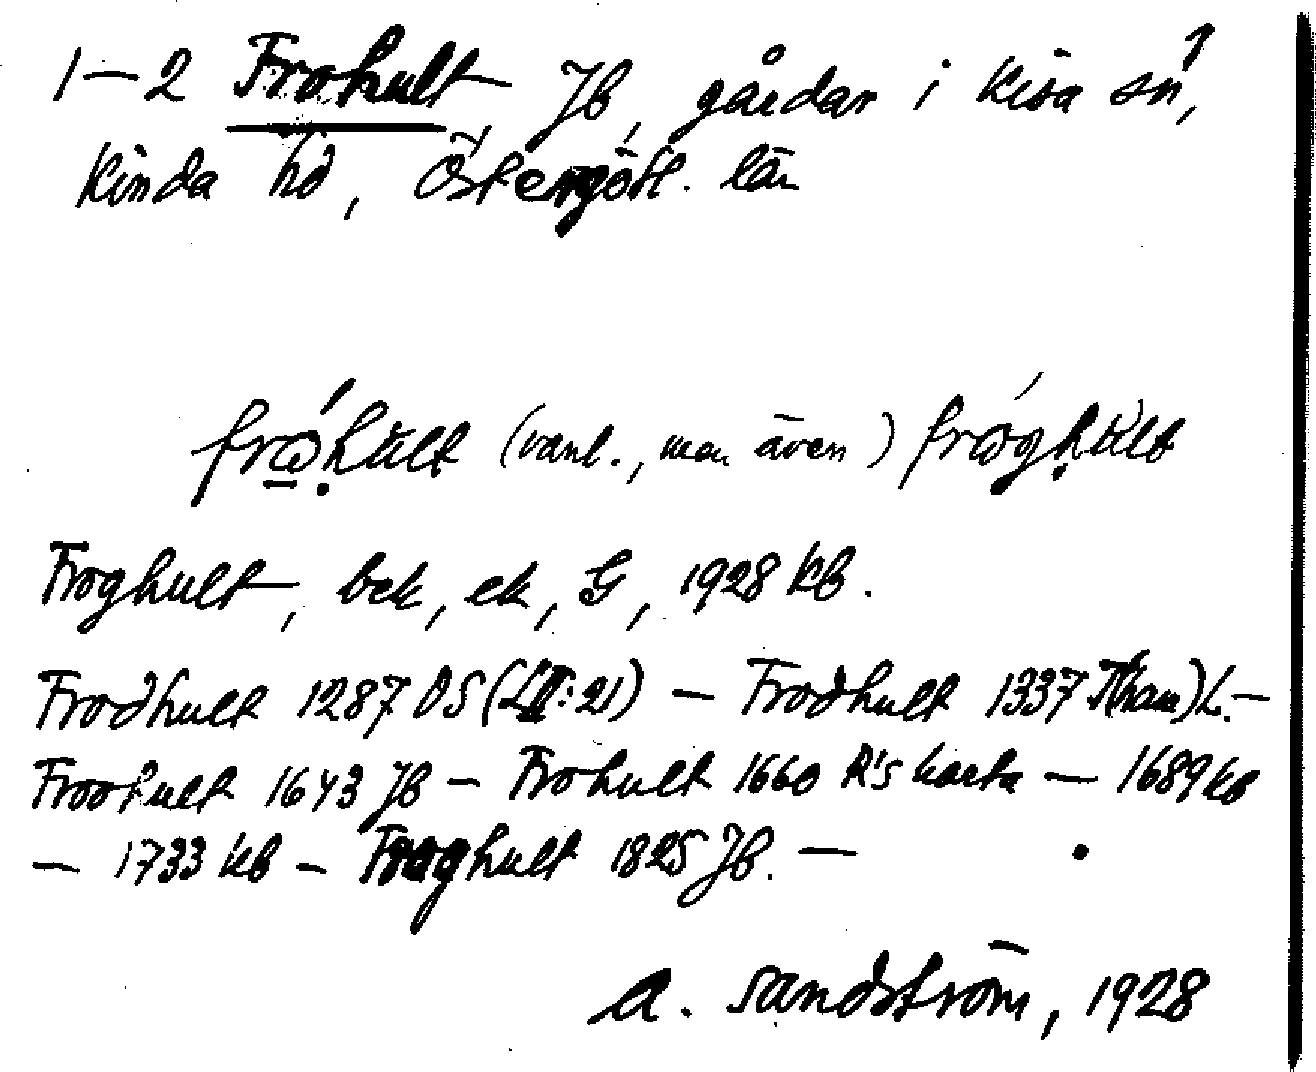 1–2 Frohult Jb, gårdar i Kisa sn,
Kinda hd, Östergötl. län
fróhult (vanl., men även) fróghult
Froghult, bek, ek, G, 1928 Kb.
Frodhult 1287 DS (II:21) – Frodhult 1337 J(ham)L. –
Froohult 1643 Jb – Frohult 1660 R's karta – 1689 kb
– 1733 kb – Froghult 1825 Jb. –
A. Sandström, 1928